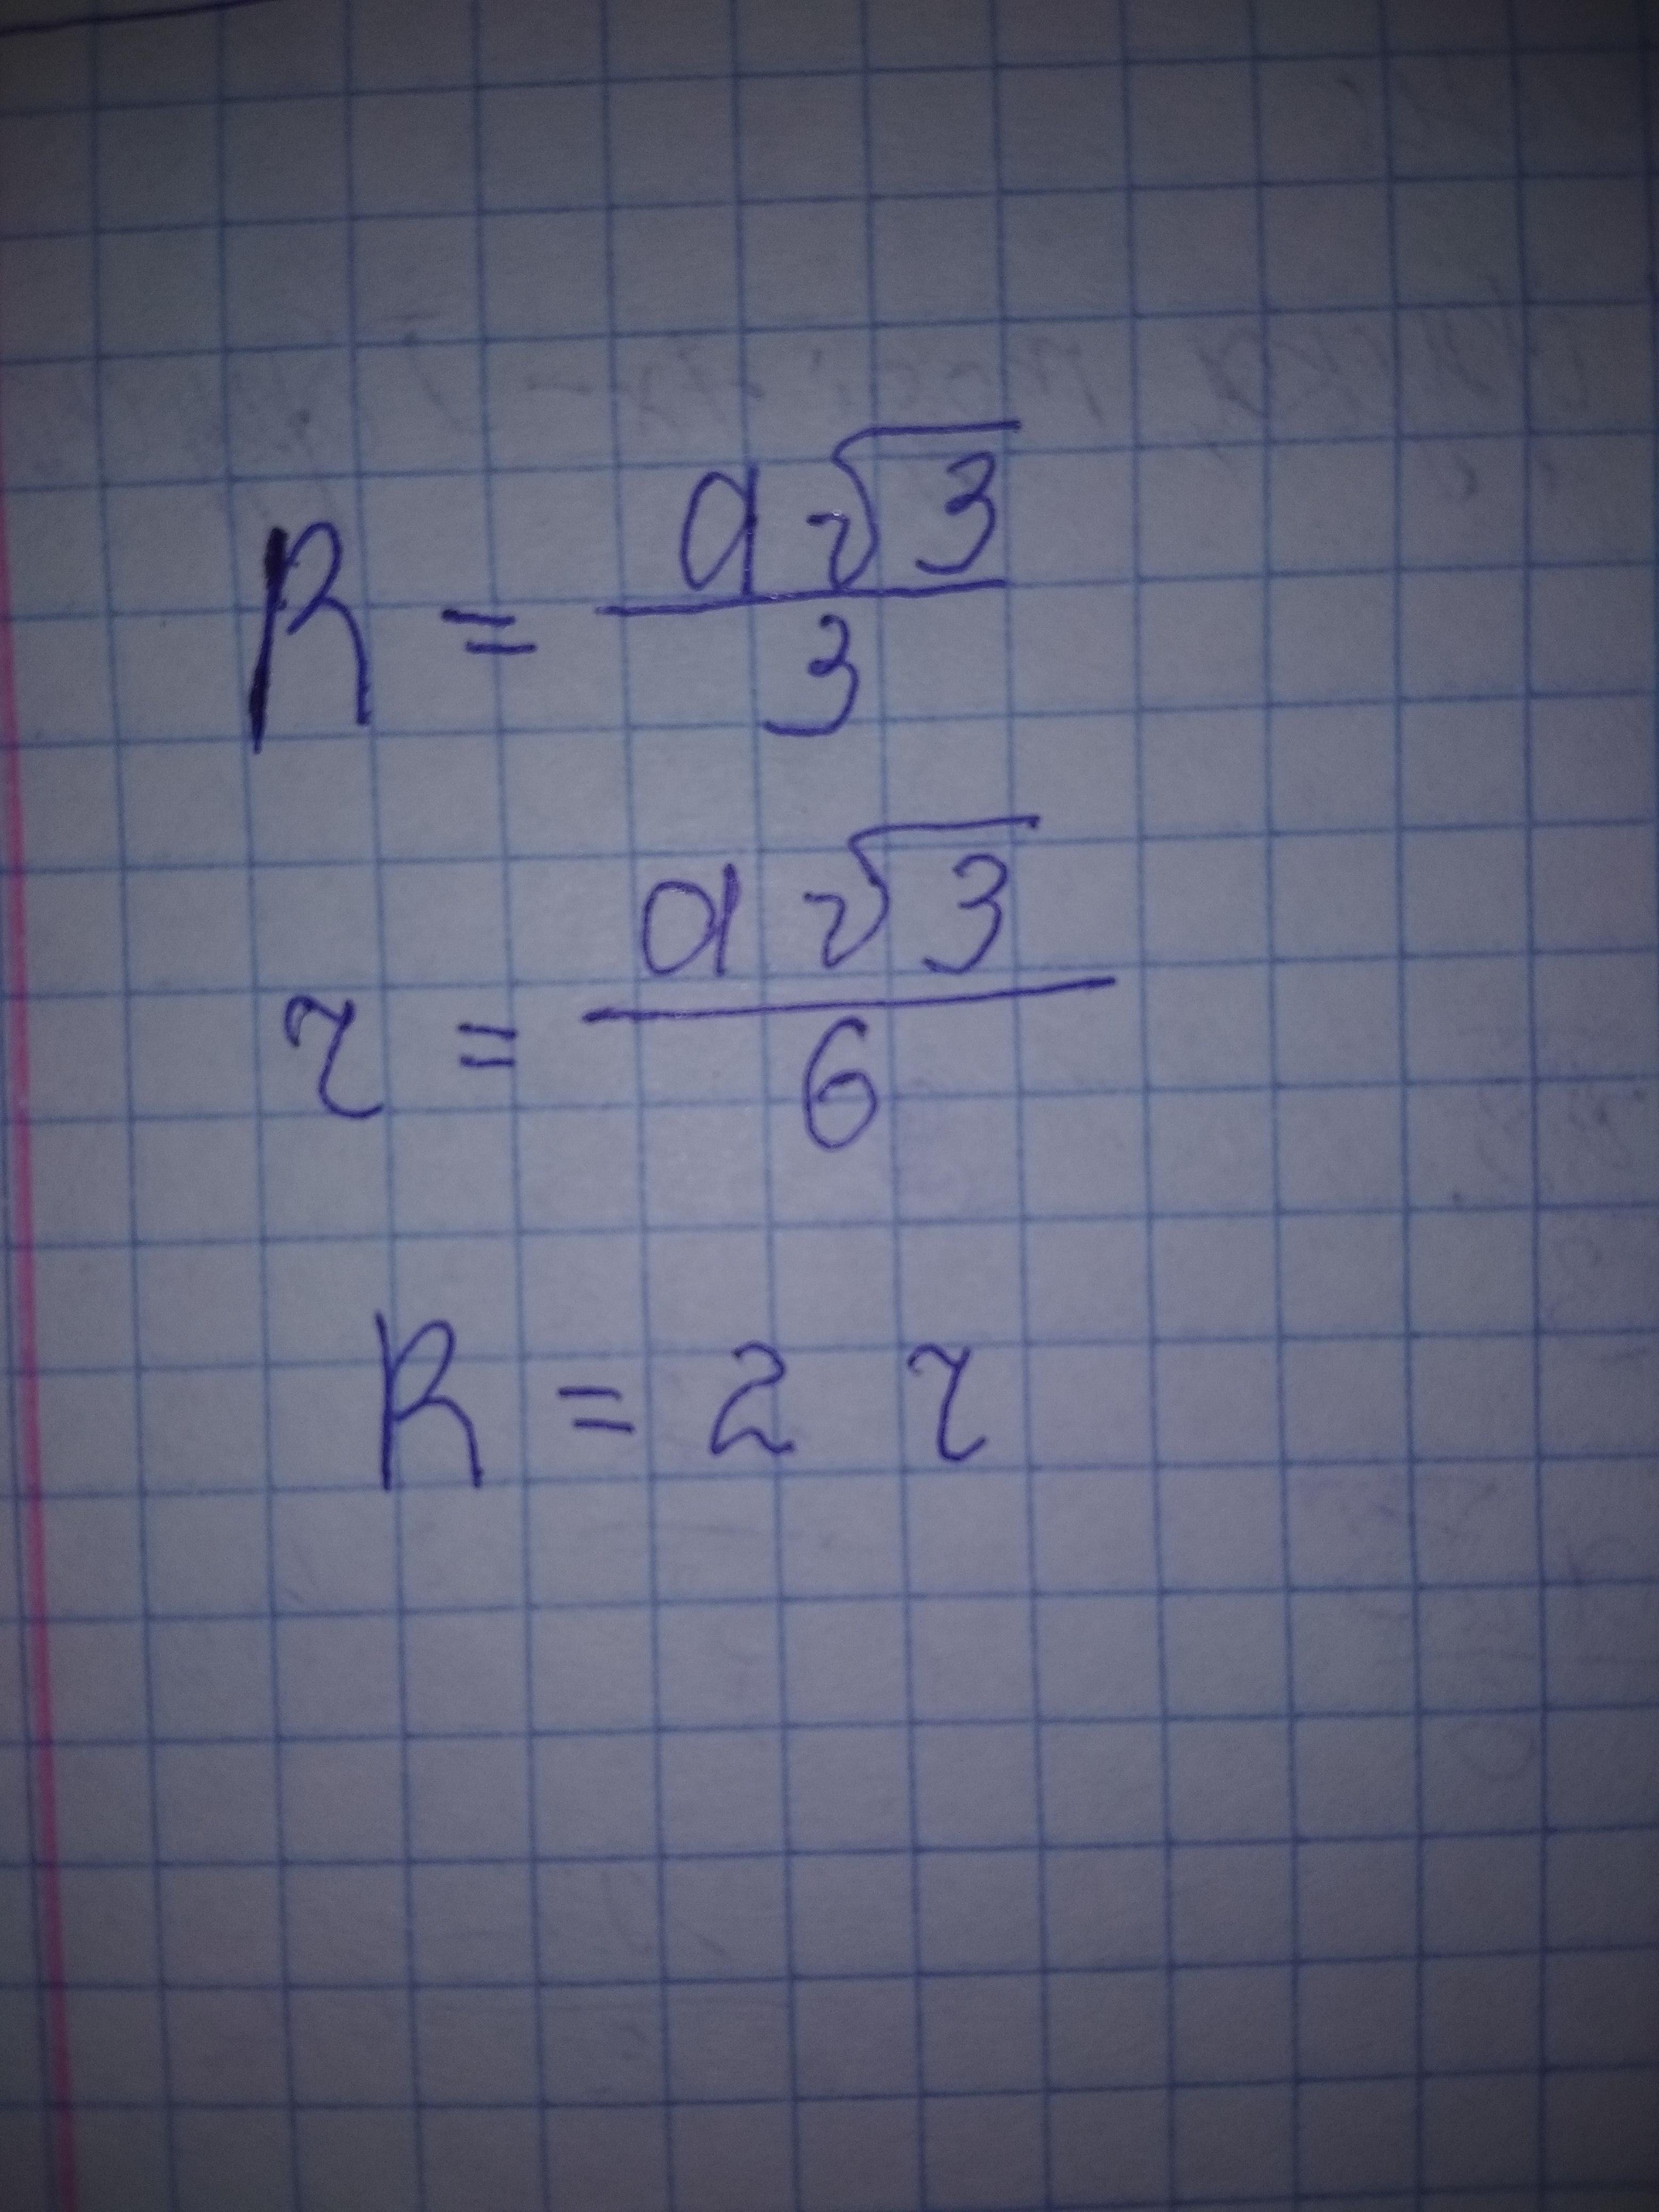 R = a√3/3
r = a√3/6
R = 2 r